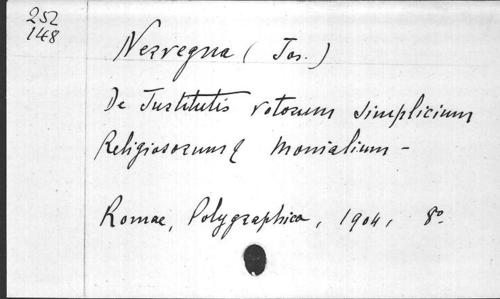 252
148
Nervegna (Jos.)
De Institutis votorum simplicium
Religiosorum & monialium -
Romae, Polygraphica, 1904, 8º